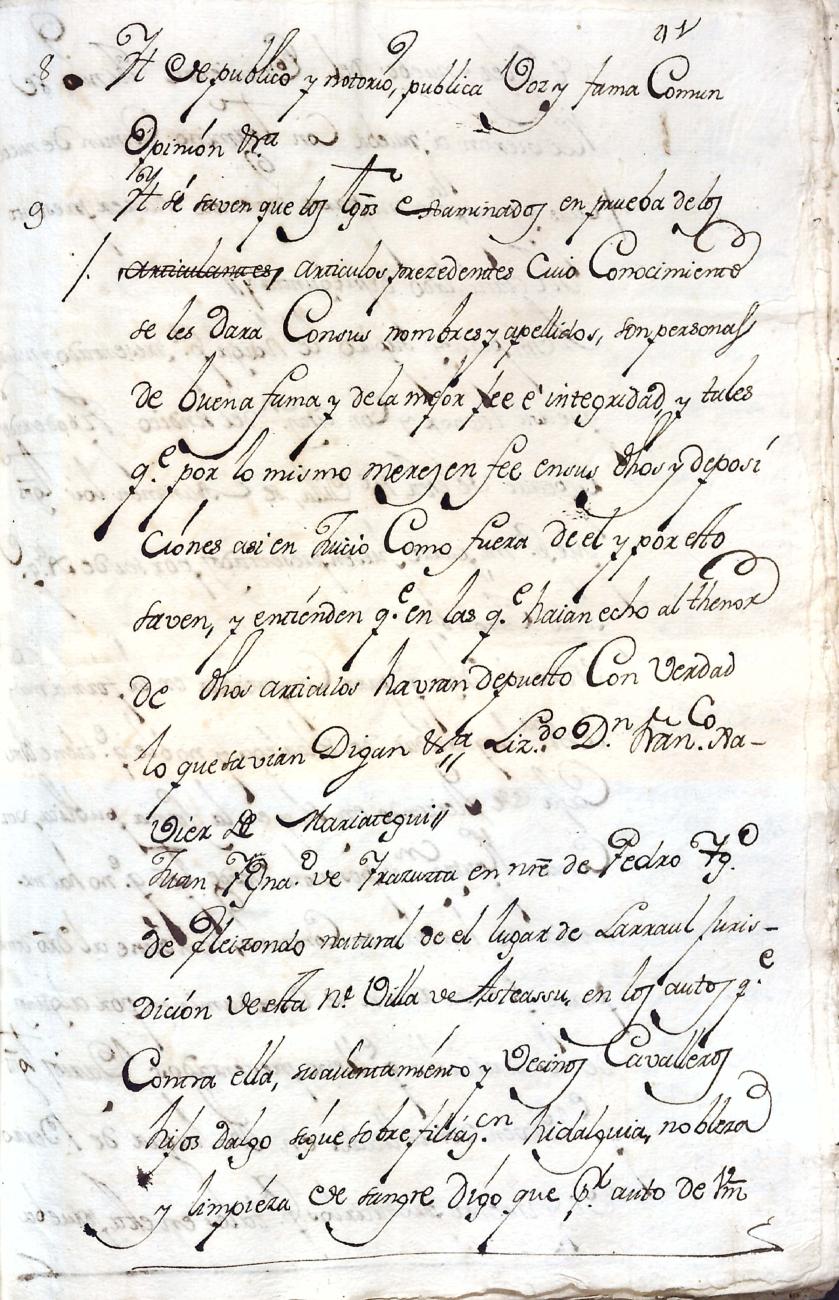 41
8 It de publico y notorio, publica Voz y fama Comun
Opinión &ra
9 It si saven que los tgos esaminados en prueba de los
/. articulantes, articulos prezedentes Cuio Conocimiento
se les dara Consus nombres y apellidos, son personas
de buena fama y de la mejor fee é integridad, y tales
q.e por lo mismo merezen fee ensus dhos y deposi
ciónes asi en Juicio Como fuera de el y por esto
saven, y entiénden q.e en las q.e haian echo al thenor
de dhos articulos havran depuesto Con verdad
lo que savian Digan &ra Liz.do D.n Fran.co Xa-
vier de Mariategui
Juan Ygna.o de Yrazuzta en nre de Pedro Yg.o
de Eleizondo natural de el lugar de Larraul Juris-
dición de esta N.e Villa de Asteassu, en los autos q.e
Contra ella, su aiuntamiénto y Vecinos Cavalleros
hijos dalgo sigue sobre filiaz.on hidalguia, nobleza
y limpiéza de sangre digo que p.r auto de Vm